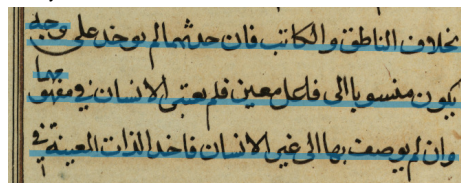 بخلاف الناطق والكاتب فان حدثهما لم يوخد على وجه
يكون منسوبا الى فاعل معين فلم يعتبر الانسان في مفهومهما
وان لم يوصف بها الى غير الانسان فاخد الذات المعينة في